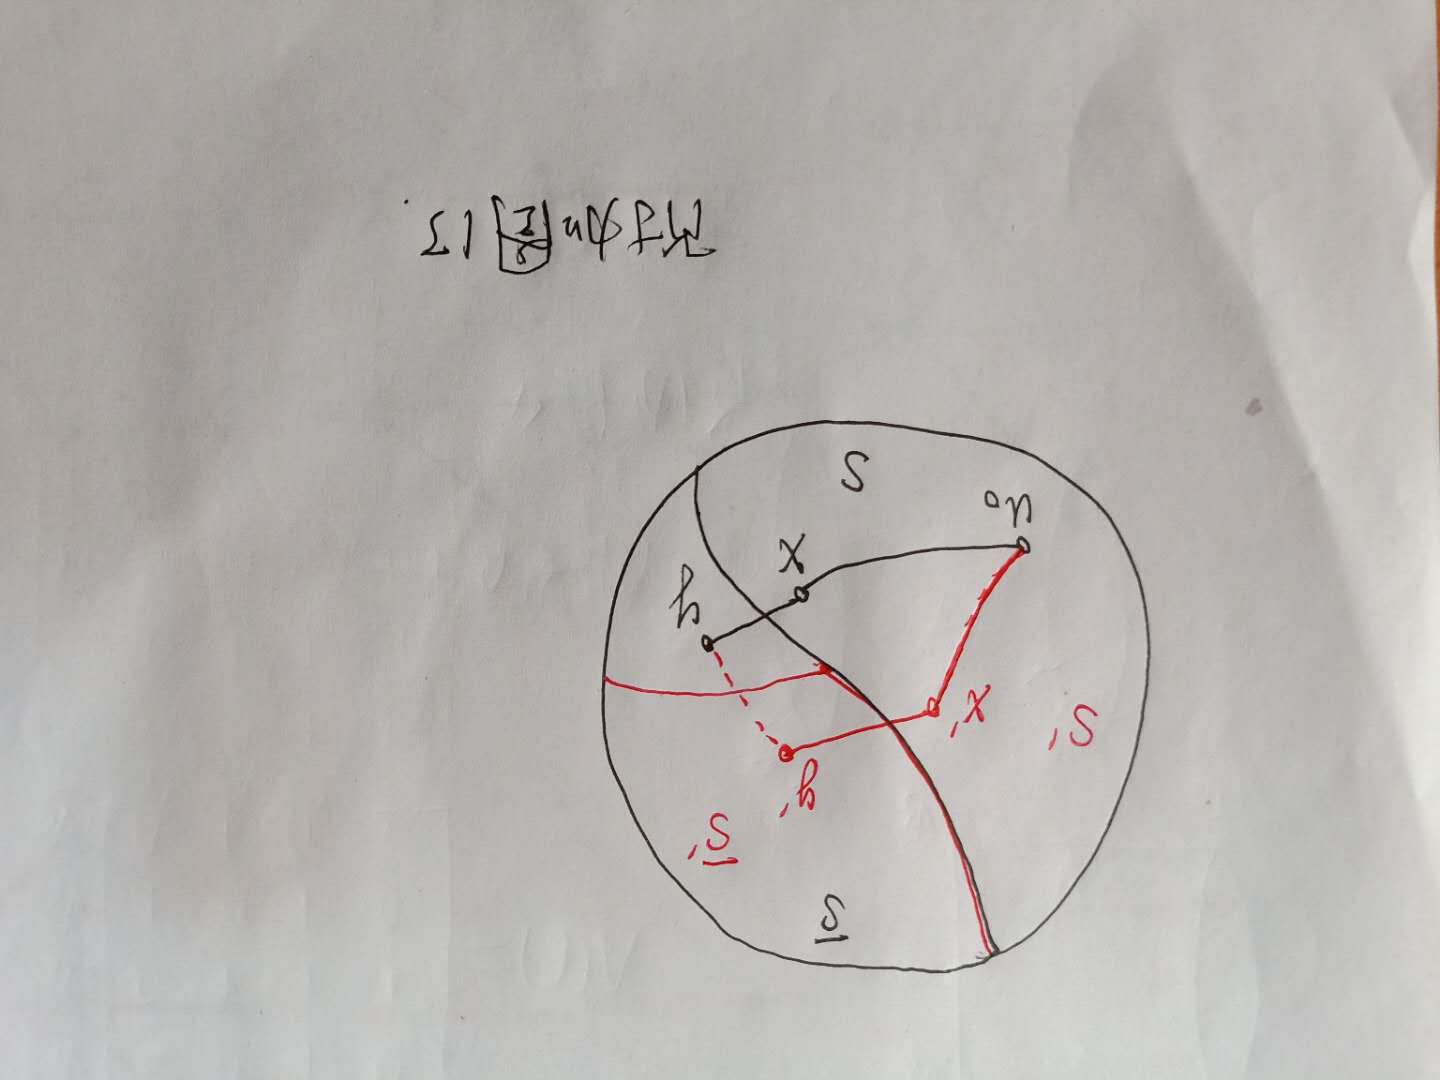 S̅
S̅′
y′
S′
x′
y
x
u₀
S
附加图13.